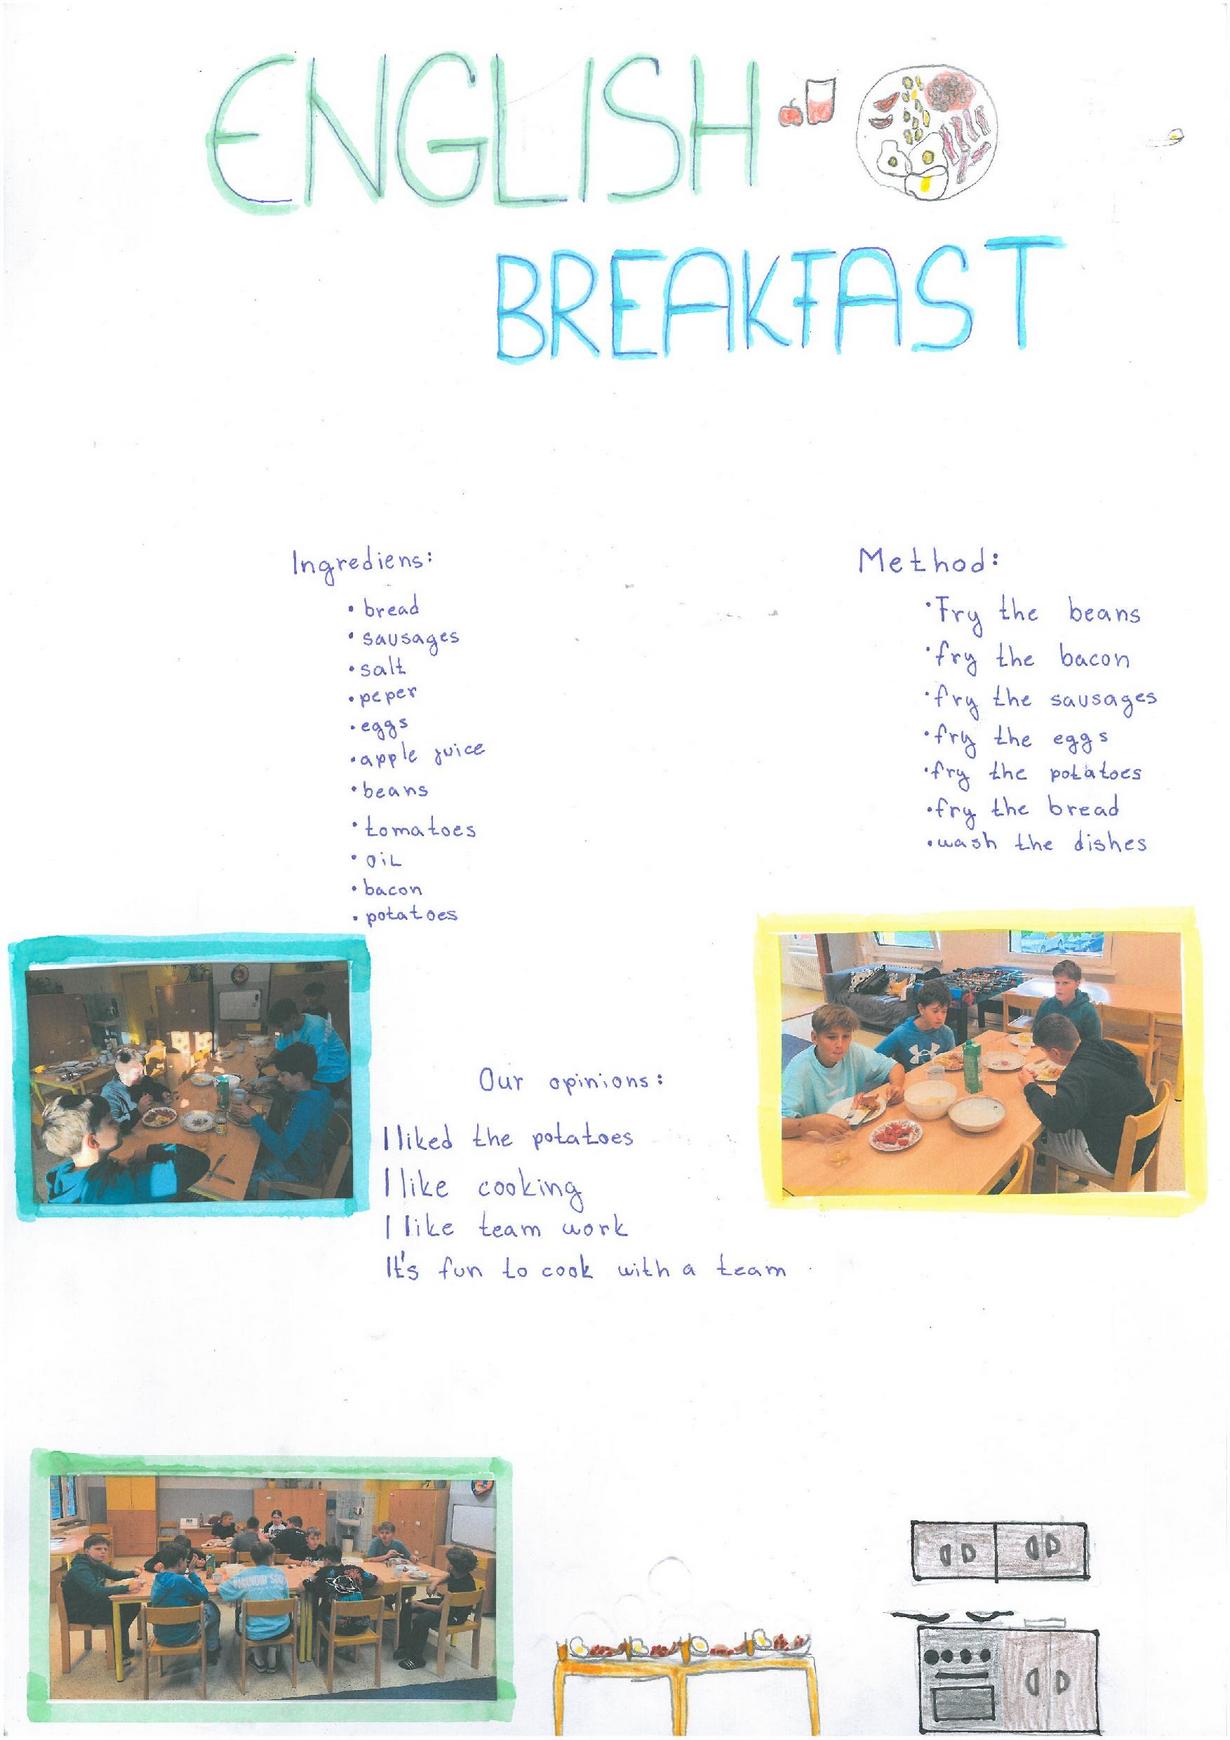 ENGLISH
BREAKFAST
Ingrediens:
• bread
• sausages
• salt
• peper
• eggs
• apple juice
• beans
• tomatoes
• oil
• bacon
• potatoes
Method:
• Fry the beans
• fry the bacon
• fry the sausages
• fry the eggs
• fry the potatoes
• fry the bread
• wash the dishes
Our opinions:
I liked the potatoes
I like cooking
I like team work
It's fun to cook with a team